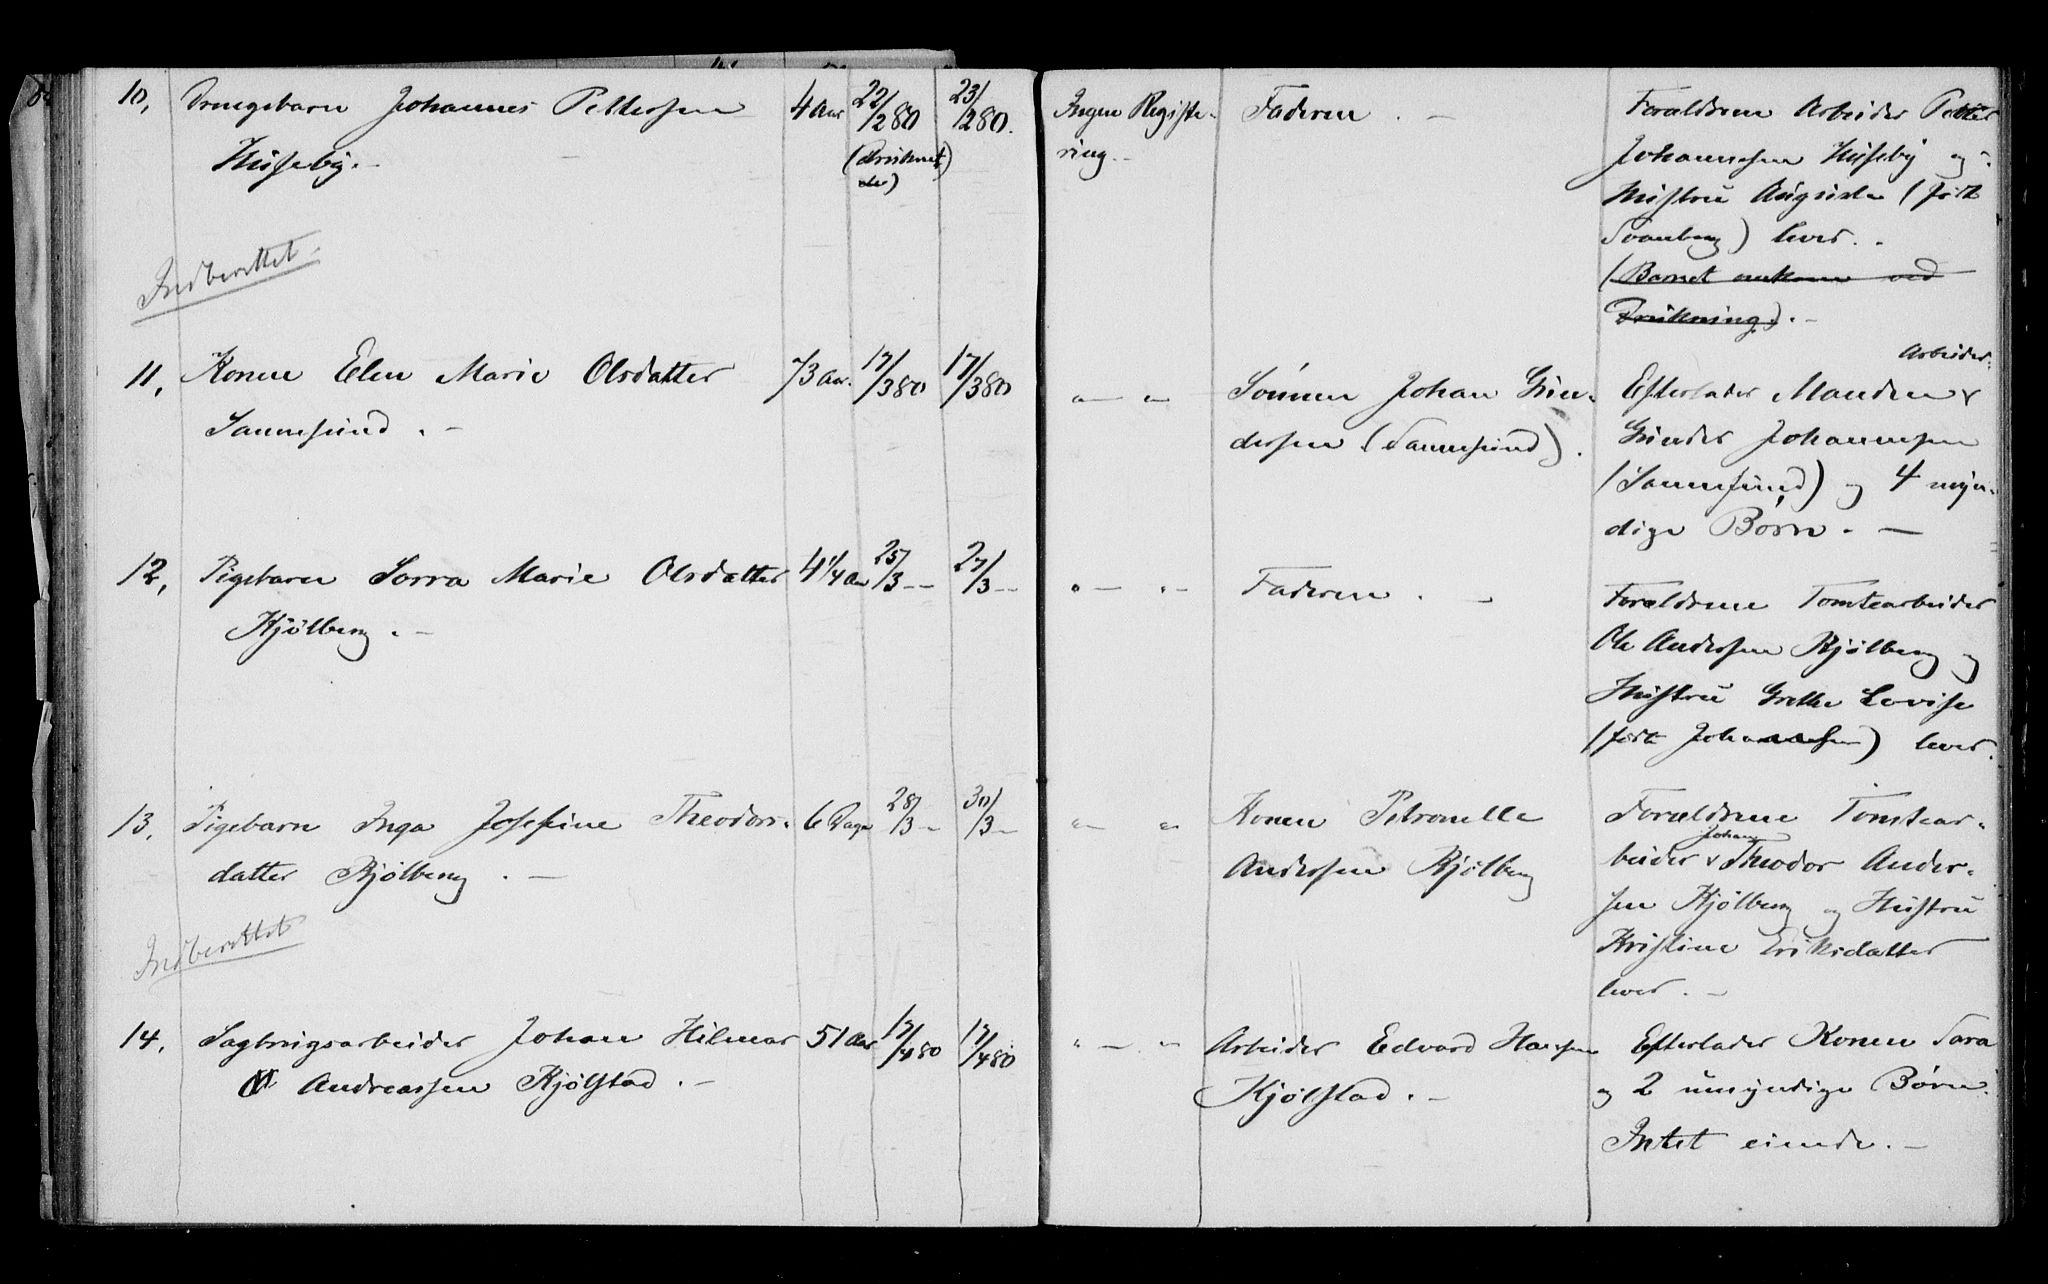 10, Drengebarn Johannes Pettersen 4 Aar 22/2 80 23/2 80. Ingen Registe- Faderen. — Forældrene Arbeider Petter
Huseby. — (Druknet ring. — Johannesen Huseby og
de) Hustru Augusta (født
Svanberg) lever. -
Indberettet. (Barnet omkom ved
Drukning). —
Arbeider
11, Konen Elen Marie Olsdatter 73 Aar. 17/3 80 17/3 80 „ — „ — Sønnen Johan Gun- Efterlader Manden
Sannesund. — dersen (Sannesund). Gunder Johannesen
(Sannesund) og 4 myn-
dige Børn. —
12, Pigebarn Sorra Marie Olsdatter 4 1/4 Aar 25/3 — 27/3 — „ — „ — Faderen. — Forældrene Tomtearbeider
Kjølberg. — Ole Andersen Kjølberg og
Hustru Grethe Lovise
(født Johannesen) lever.
13, Pigebarn Inga Josefine Theodors- 6 Dage 28/3 — 30/3 — „ — „ — Konen Petronelle Forældrene Tomtear-
datter Kjølberg. — Andersen Kjølberg beider Johan Theodor Ander-
sen Kjølberg og Hustru
Indberettet Kristine Eriksdatter
lever. —
14, Sagbrugsarbeider Johan Hilmar 51 Aar 17/4 80 17/4 80 „ — „ — Arbeider Edvard Hansen Efterlader Konen Sara
Andreassen Kjølstad. — Kjølstad. — og 2 umyndige Børn.
Intet eiende. —